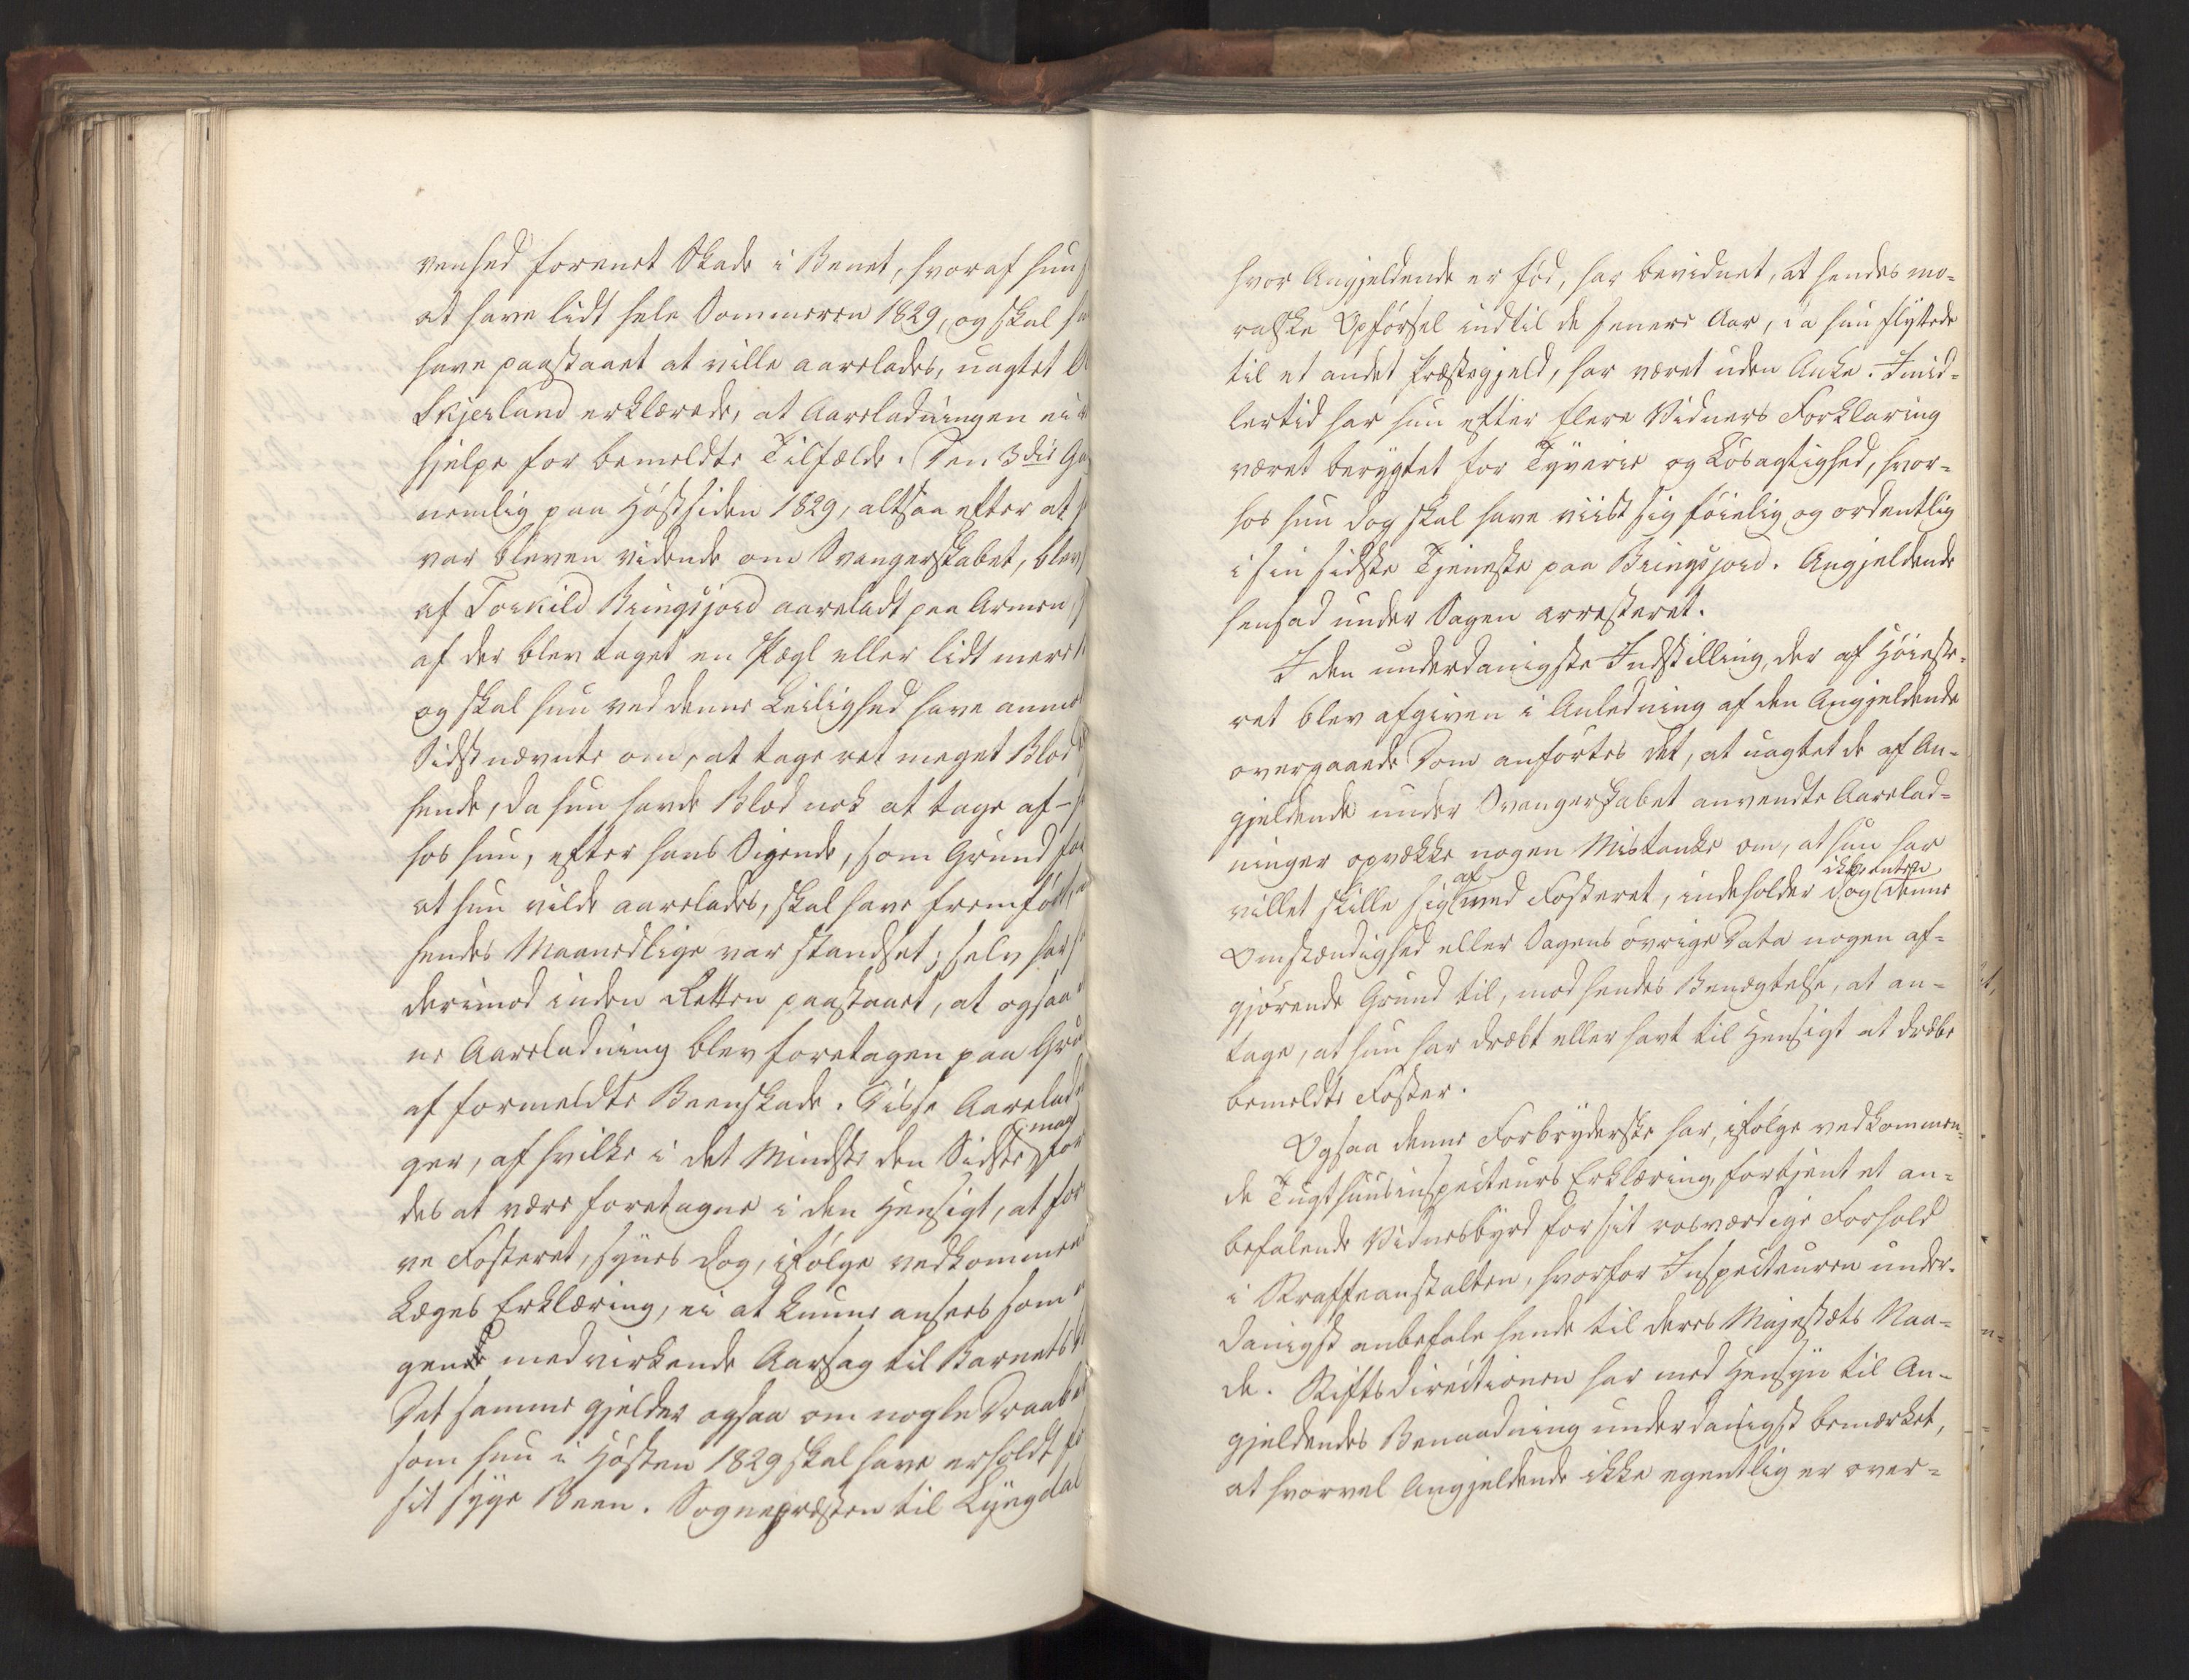 venhed forenet Skade i Benet, hvoraf hun
at have lidt hele Sommeren 1829, og skal
have paastaaet at ville aarelades, uagtet
Skjerland erklærede, at Aareladningen ei
hjelpe for bemeldte Tilfælde. Den 3die
nemlig paa Høstsiden 1829, altsaa efter at
var bleven vidende om Svangerskabet, blev
af Torkild Bringsjord aareladt paa Armen
af der blev taget en Pægl eller lidt mere
og skal hun ved denne Leilighed have anmo
Sidstnævnte om, at tage ret meget Blod
hende, da hun havde Blod nok at tage af -
hos hun, efter hans Sigende, som Grund for
at hun vilde aarelades, skal have fremført,
hendes Maanedlige var standset; selv har
derimod inden Retten paastaaet, at ogsaa
ne Aareladning blev foretagen paa Gru
af formeldte Beenskade. Disse Aarelad
ger, af hvilke i det Mindste den Sidste maa for
des at være foretagne i den Hensigt, at for
ve Fosteret, synes dog, ifølge vedkommen
Læges Erklæring, ei at kunne ansees som
gen medvirkende Aarsag til Barnets
Det samme gjelder ogsaa om nogle Draaber
som hun i Høsten 1829 skal have erholdt
sit syge Been. Sognepræsten til Lyngdal
hvor Angjeldende er fød, har bevidnet, at hendes mo-
ralske Opførsel indtil de senere Aar, da hun flyttede
til et andet Præstegjeld, har været uden Anke. Imid-
lertid har hun efter flere Vidners Forklaring
været berygtet for Tyverie og Løsagtighed, hvor-
hos hun dog skal have viist sig føielig og ordentlig
i sin sidste Tjeneste paa Bringsjord. Angjeldende
hensad under Sagen arresteret.
I den underdanigste Indstilling, der af Høieste-
ret blev afgiven i Anledning af den Angjeldende
overgaaede Dom anførtes det, at uagtet de af An-
gjeldende under Svangerskabet anvendte Aarelad-
ninger opvække nogen Mistanke om, at hun har
villet skille sig af med Fosteret, indeholder dog ikke enten denne
Omstændighed eller Sagens øvrige Data nogen af-
gjørende Grund til, mod hendes Benægtelse, at an-
tage, at hun har dræbt eller havt til Hensigt at dræbe
bemeldte Foster.
Ogsaa denne Forbryderske har, ifølge vedkommen-
de Tugthuusinspecteurs Erklæring, fortjent et an-
befalende Vidnesbyrd for sit rosværdige Forhold
i Straffeanstalten, hvorfor Inspecteuren under-
danigst anbefale hende til deres Majestæts Naa-
de. Stiftsdirectionen har med Hensyn til An-
gjeldendes Benaadning underdanigst bemærket,
at hvorvel Angjeldende ikke egentlig er over-